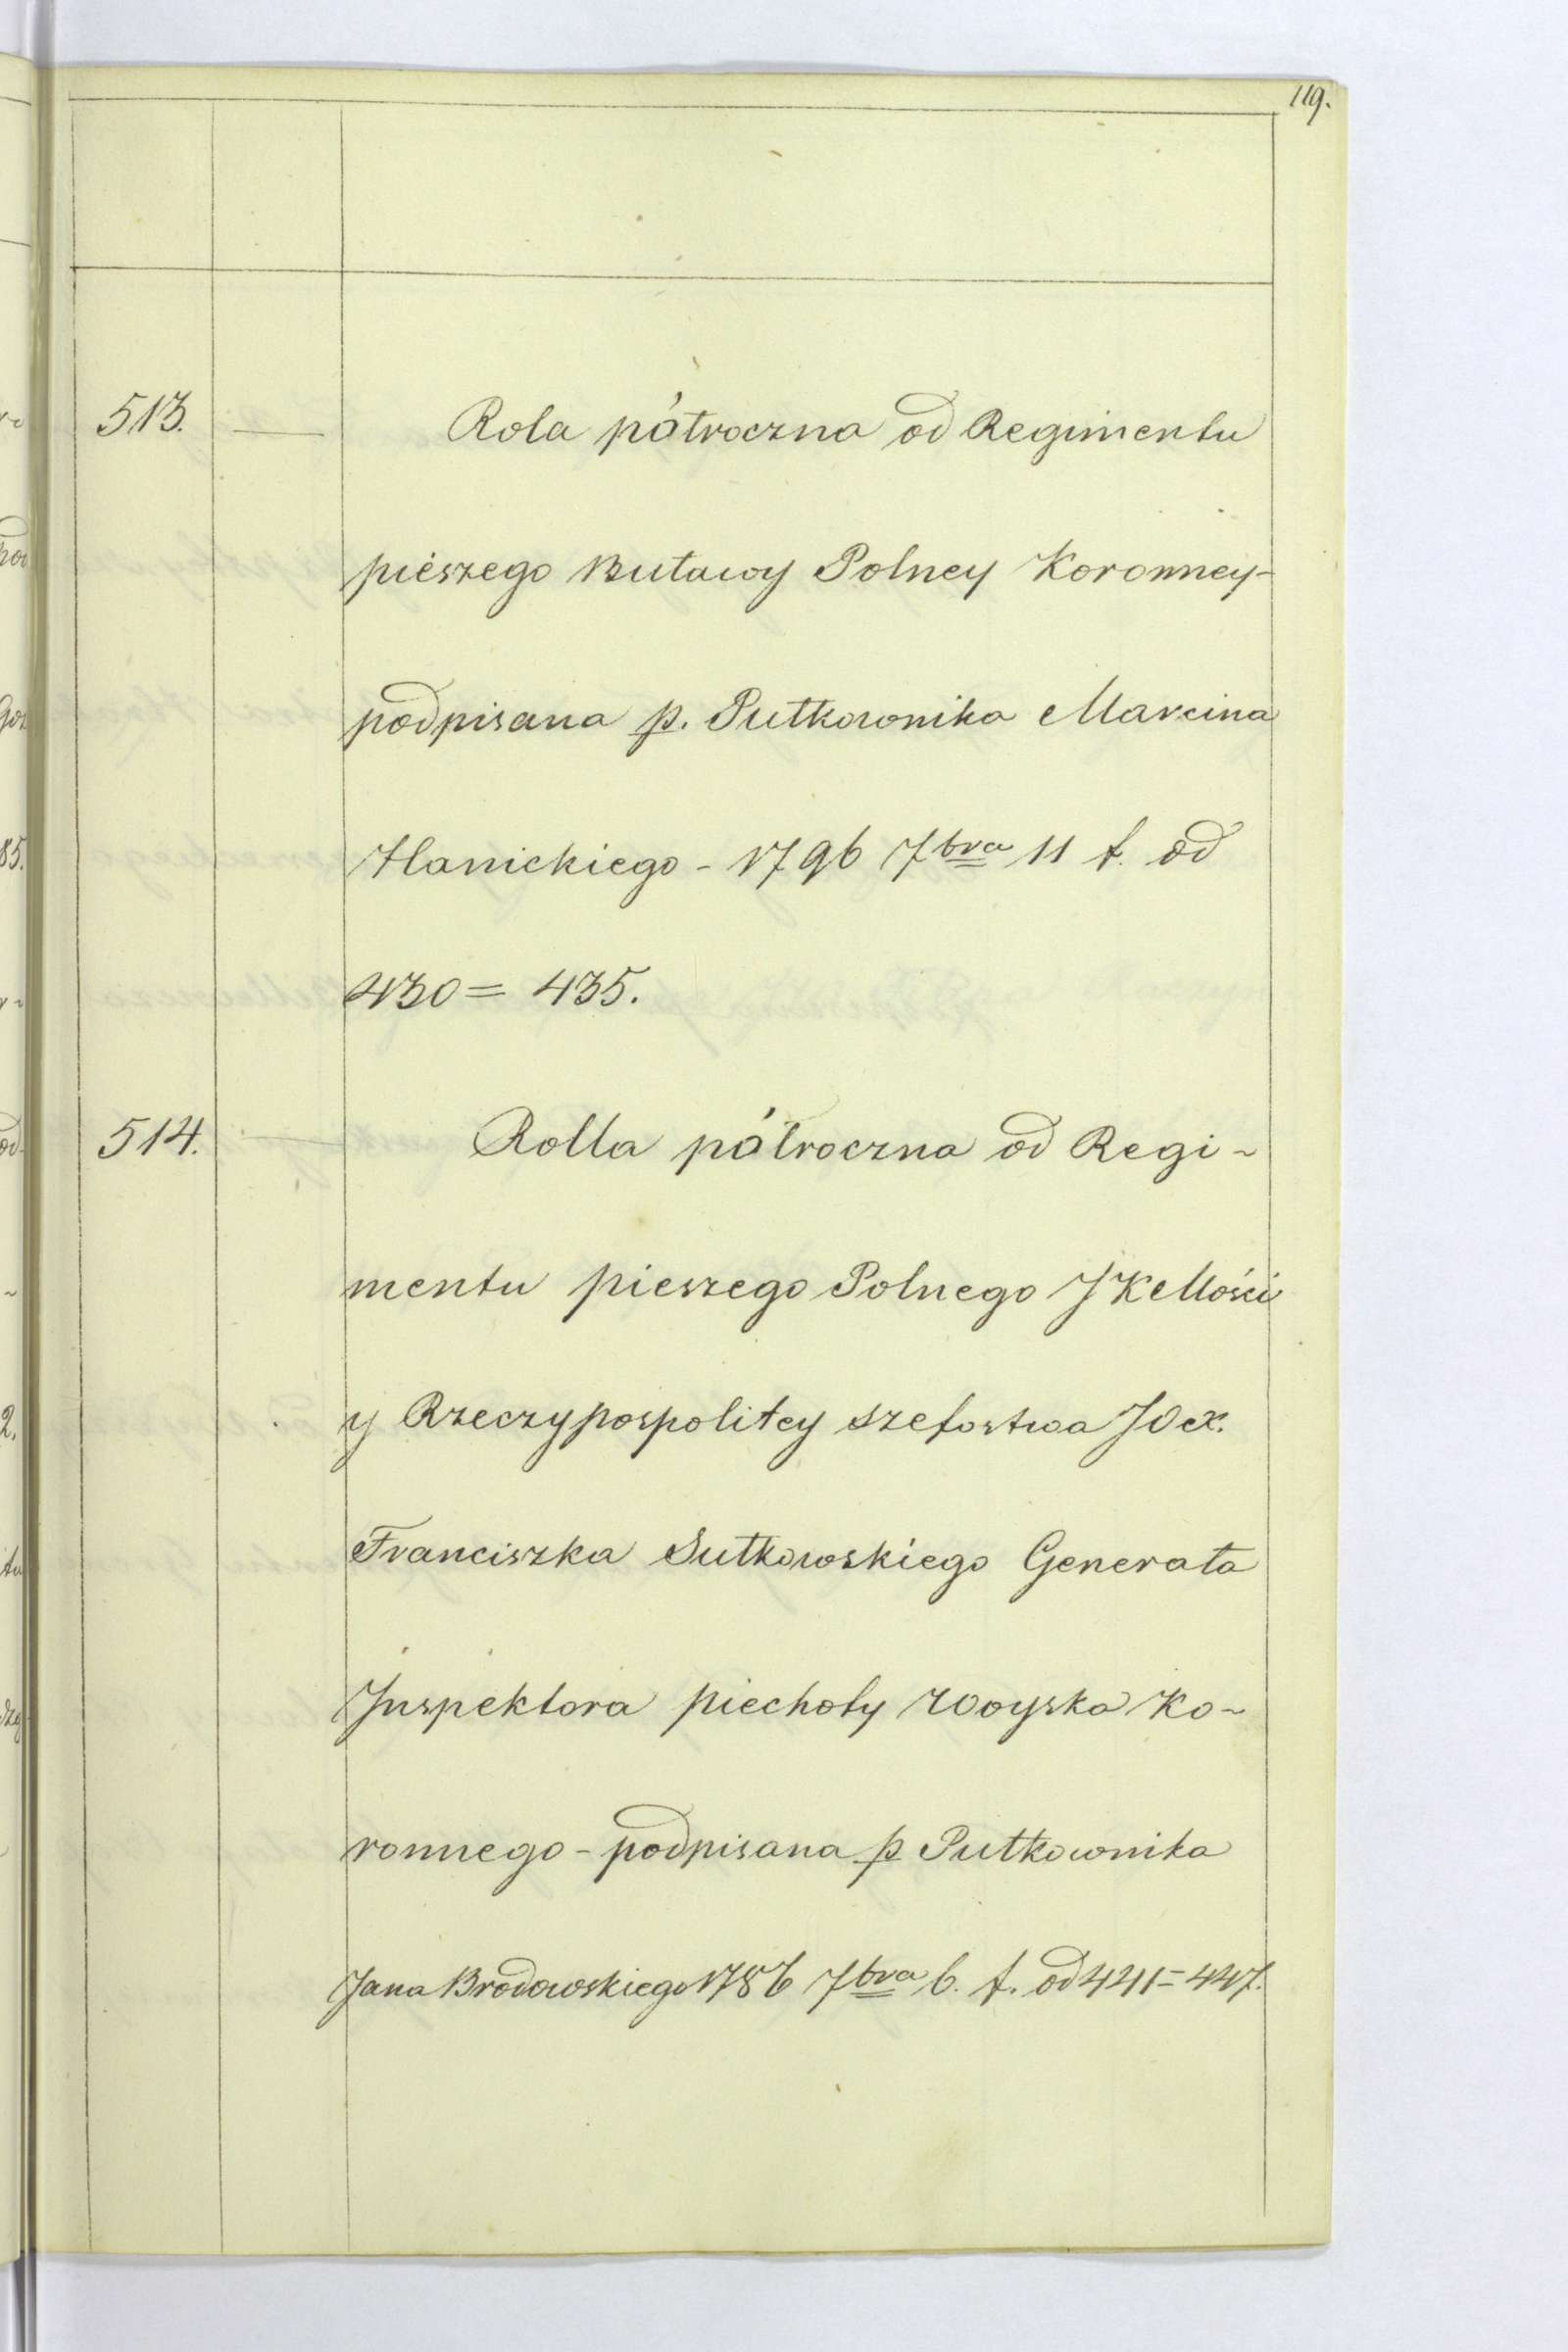 119.
513. — Rola półroczna od Regimentu
pieszego Buławy Polney Koronney-
podpisana p. Pułkownika Marcina
Hanickiego - 1796 7bra 11 f. od
430 = 435.
514. — Rolla półroczna od Regi-
mentu pieszego Polnego JKMości
y Rzeczypospolitey szefostwa JOX.
Franciszka Sułkowskiego Generała
Inspektora piechoty Woyska Ko-
ronnego - podpisana p Pułkownika
Jana Brodowskiego 1786 7bra 6. f. od 441 = 447.